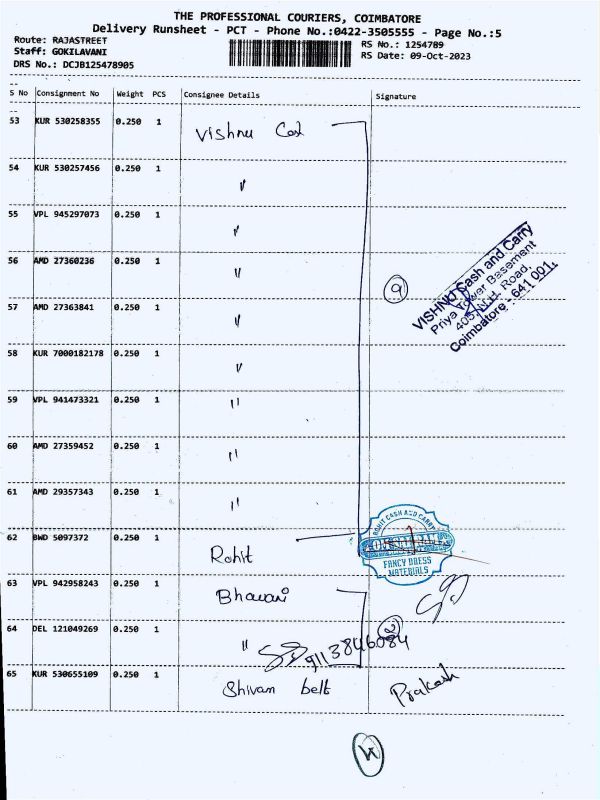 THE PROFESSIONAL COURIERS, COIMBATORE
Delivery Runsheet - PCT - Phone No.:0422-3505555 - Page No.:5
Route: RAJASTREET
RS No.: 1254789
Staff: GOKILAVANI
RS Date: 09-Oct-2023
DRS No.: DCJB125478905
S No Consignment No Weight PCS Consignee Details Signature
53 KUR 530258355 0.250 1 Vishnu Cash
54 KUR 530257456 0.250 1 "
55 VPL 945297073 0.250 1 "
56 AMD 27360236 0.250 1 "
9
VISHNU Cash and Carry
Priya Tower Basement
405, N.H. Road,
Coimbatore - 641 001.
57 AMD 27363841 0.250 1 "
58 KUR 7000182178 0.250 1 "
59 VPL 941473321 0.250 1 "
60 AMD 27359452 0.250 1 "
61 AMD 29357343 0.250 1 "
62 BWD 5097372 0.250 1 Rohit
ROHIT CASH AND CARRY
FANCY DRESS
MATERIALS
63 VPL 942958243 0.250 1 Bhavani
64 DEL 121049269 0.250 1 "
9113846084
2
65 KUR 530655109 0.250 1 Shivam belt Prakash